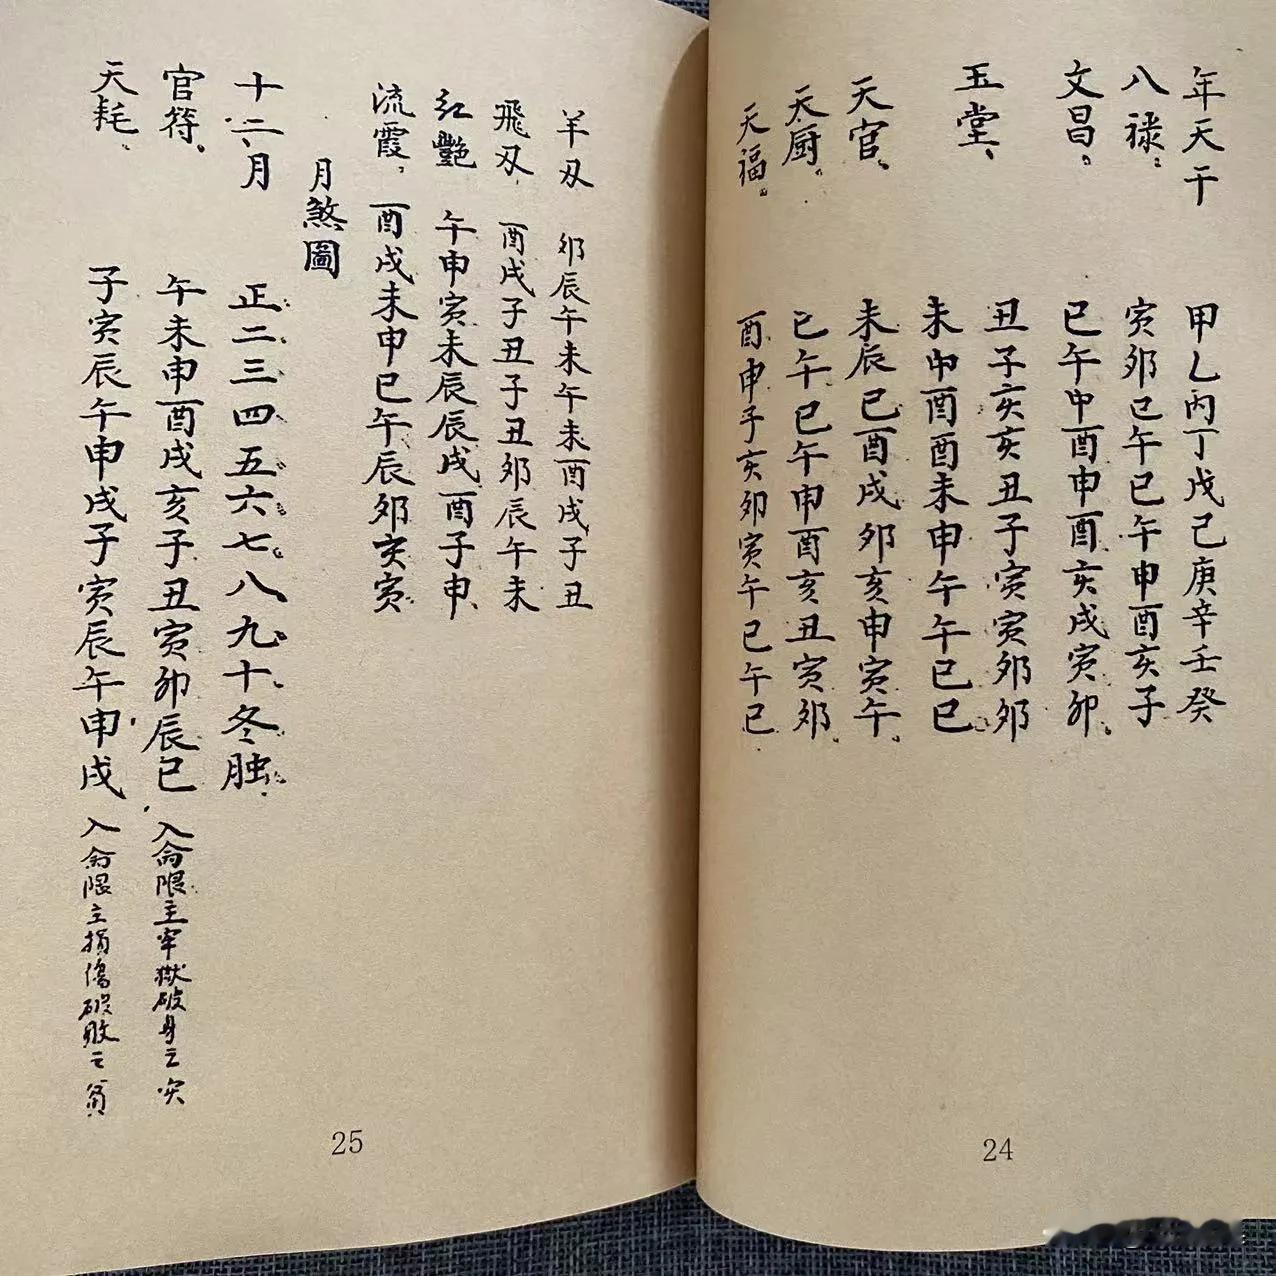 年天干 甲乙丙丁戊己庚辛壬癸
八祿 寅卯巳午巳午申酉亥子
文昌 巳午申酉申酉亥戌寅卯
玉堂 丑子亥亥丑子寅寅卯卯
未申酉酉未申午午巳巳
天官 未辰巳酉戌卯亥申寅午
天厨 巳午巳午申酉亥丑寅卯
天福 酉申子亥卯寅午巳午巳
24
羊刃 卯辰午未午未酉戌子丑
飛刃 酉戌子丑子丑卯辰午未
红艷 午申寅未辰辰戌酉子申
流霞 酉戌未申巳午辰卯亥寅
月煞圖
十二月 正二三四五六七八九十冬
官符 午未申酉戌亥子丑寅卯辰巳 入命限主牢獄破身之
天耗 子寅辰午申戌子寅辰午申戌 入命限主損傷破敗之
25